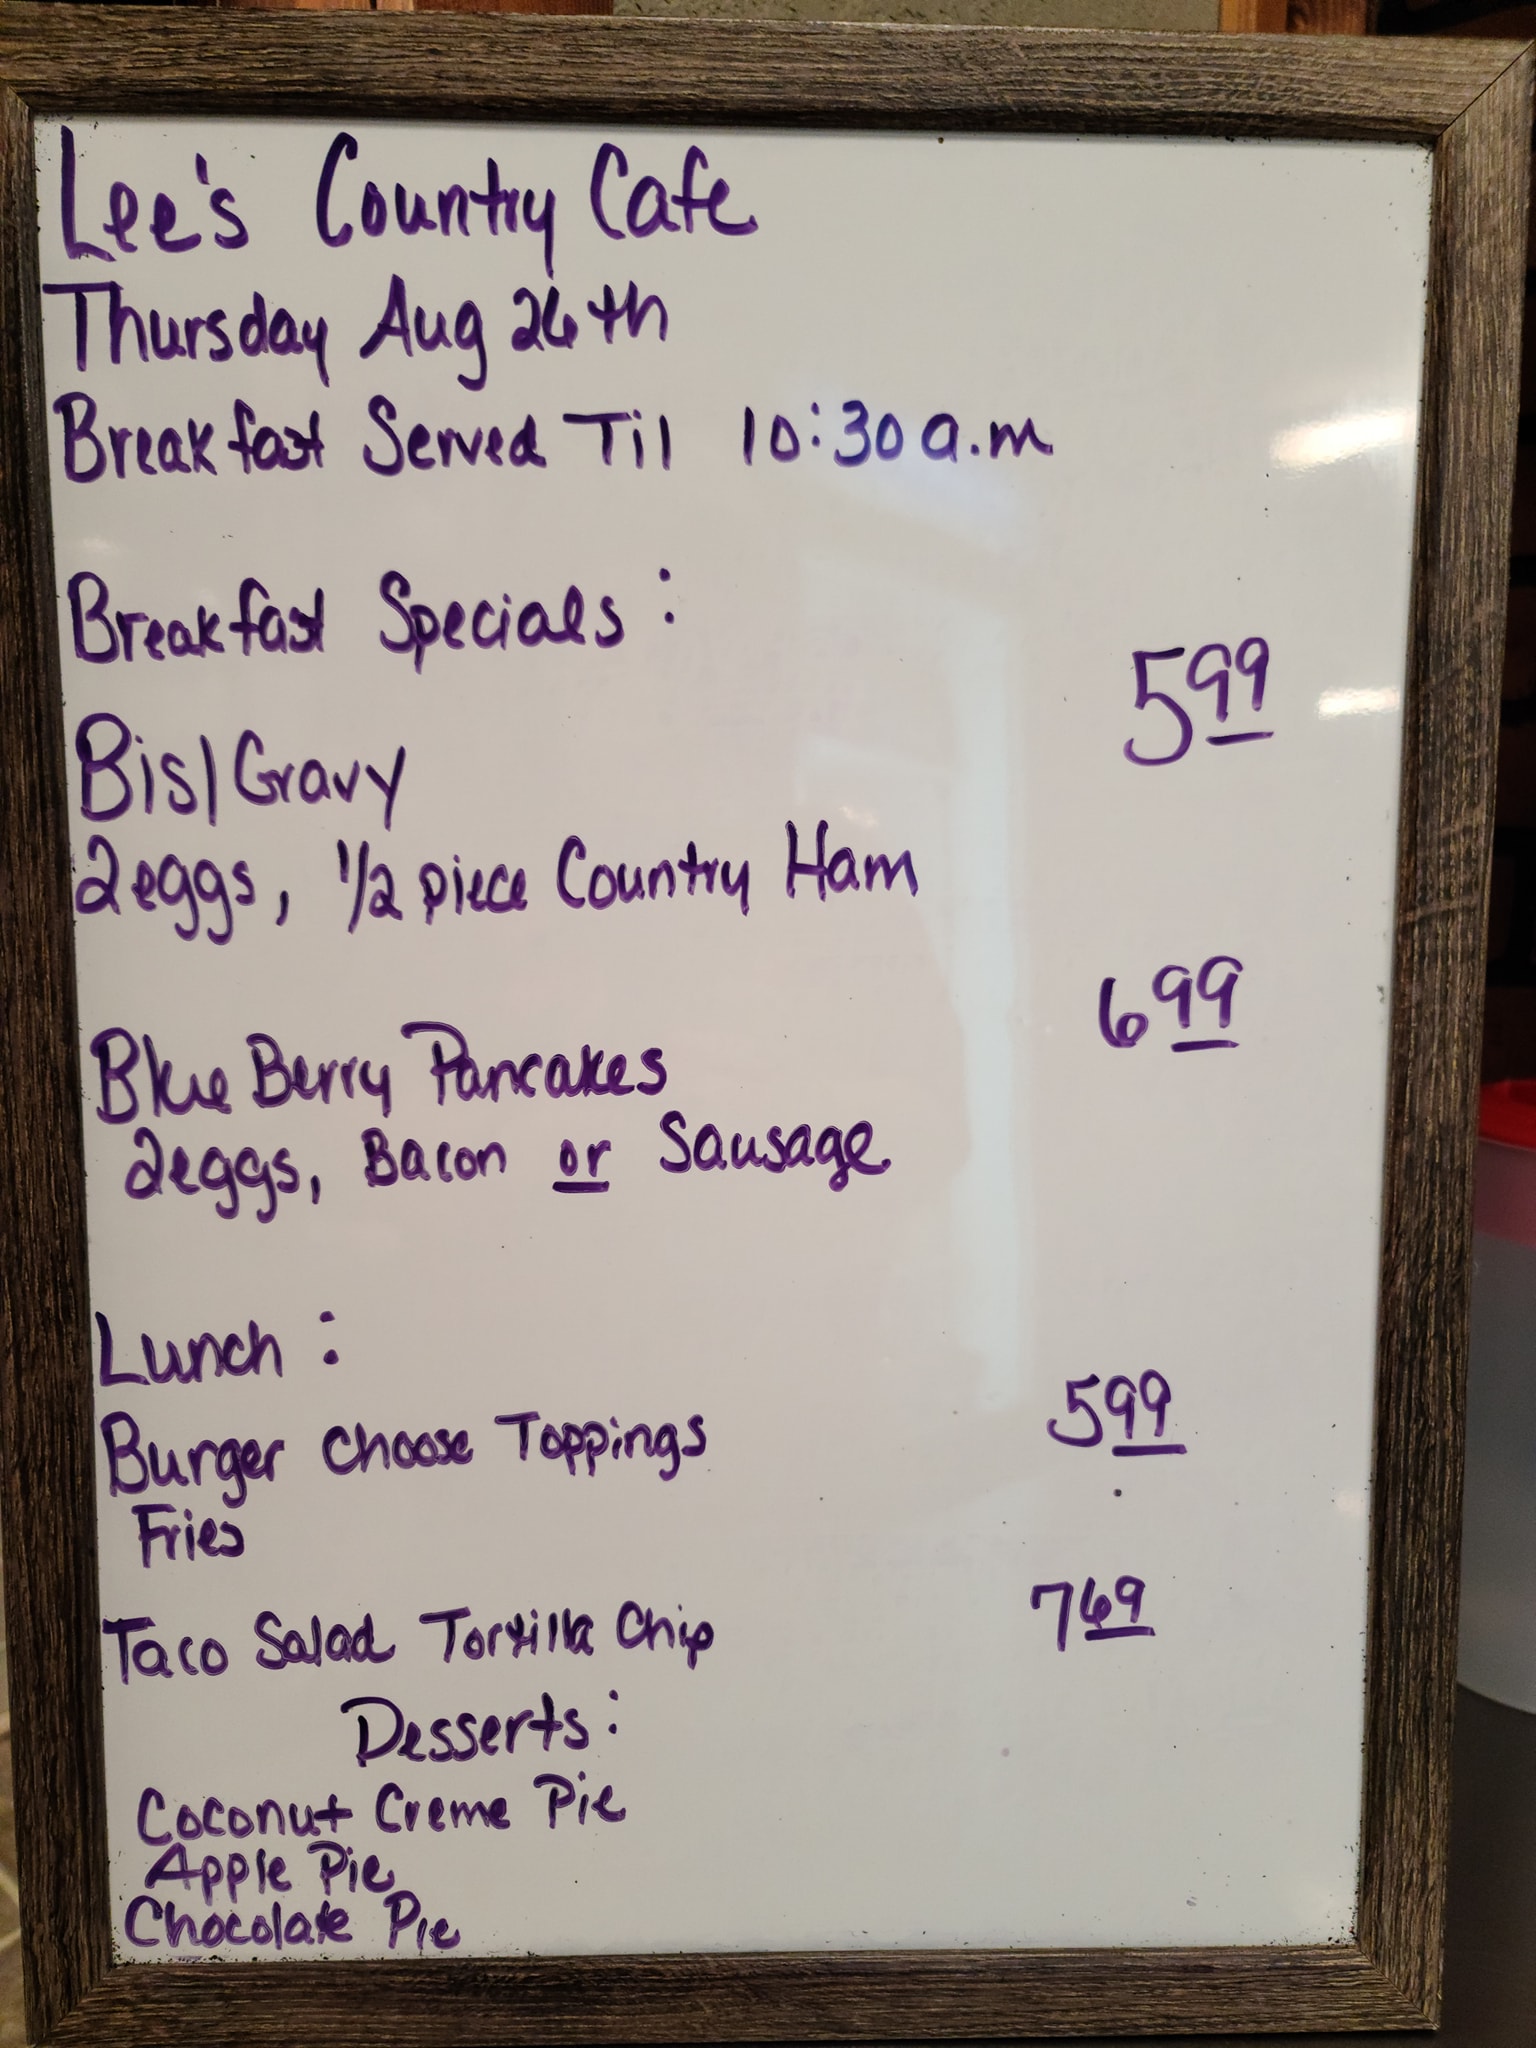 Lee's Country Cafe
Thursday Aug 26th
Breakfast Served Til 10:30 a.m
Breakfast Specials:
5 99
Bis/Gravy
2 eggs, 1/2 piece Country Ham
6 99
Blue Berry Pancakes
2 eggs, Bacon or Sausage
Lunch:
Burger Choose Toppings 5 99
Fries
Taco Salad Tortilla Chip 7 69
Desserts:
Coconut Creme Pie
Apple Pie
Chocolate Pie